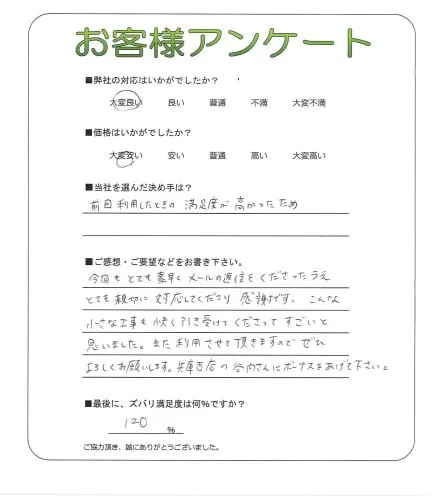 お客様アンケート
■弊社の対応はいかがでしたか？
大変良い 良い 普通 不満 大変不満
■価格はいかがでしたか？
大変安い 安い 普通 高い 大変高い
■当社を選んだ決め手は？
前回利用したときの 満足度が 高かったため
■ご感想・ご要望などをお書き下さい。
今回も とても素早く メールの返信をくださったうえ
とても親切に 対応してくださり 感謝です。 こんな
小さな工事も快く引き受けてくださって すごいと
思いました。また利用させて頂きますので ぜひ
よろしくお願いします。兵庫西店の谷内さんにボーナスをあげて下さい。
■最後に、ズバリ満足度は何%ですか？
120 %
ご協力頂き、誠にありがとうございました。